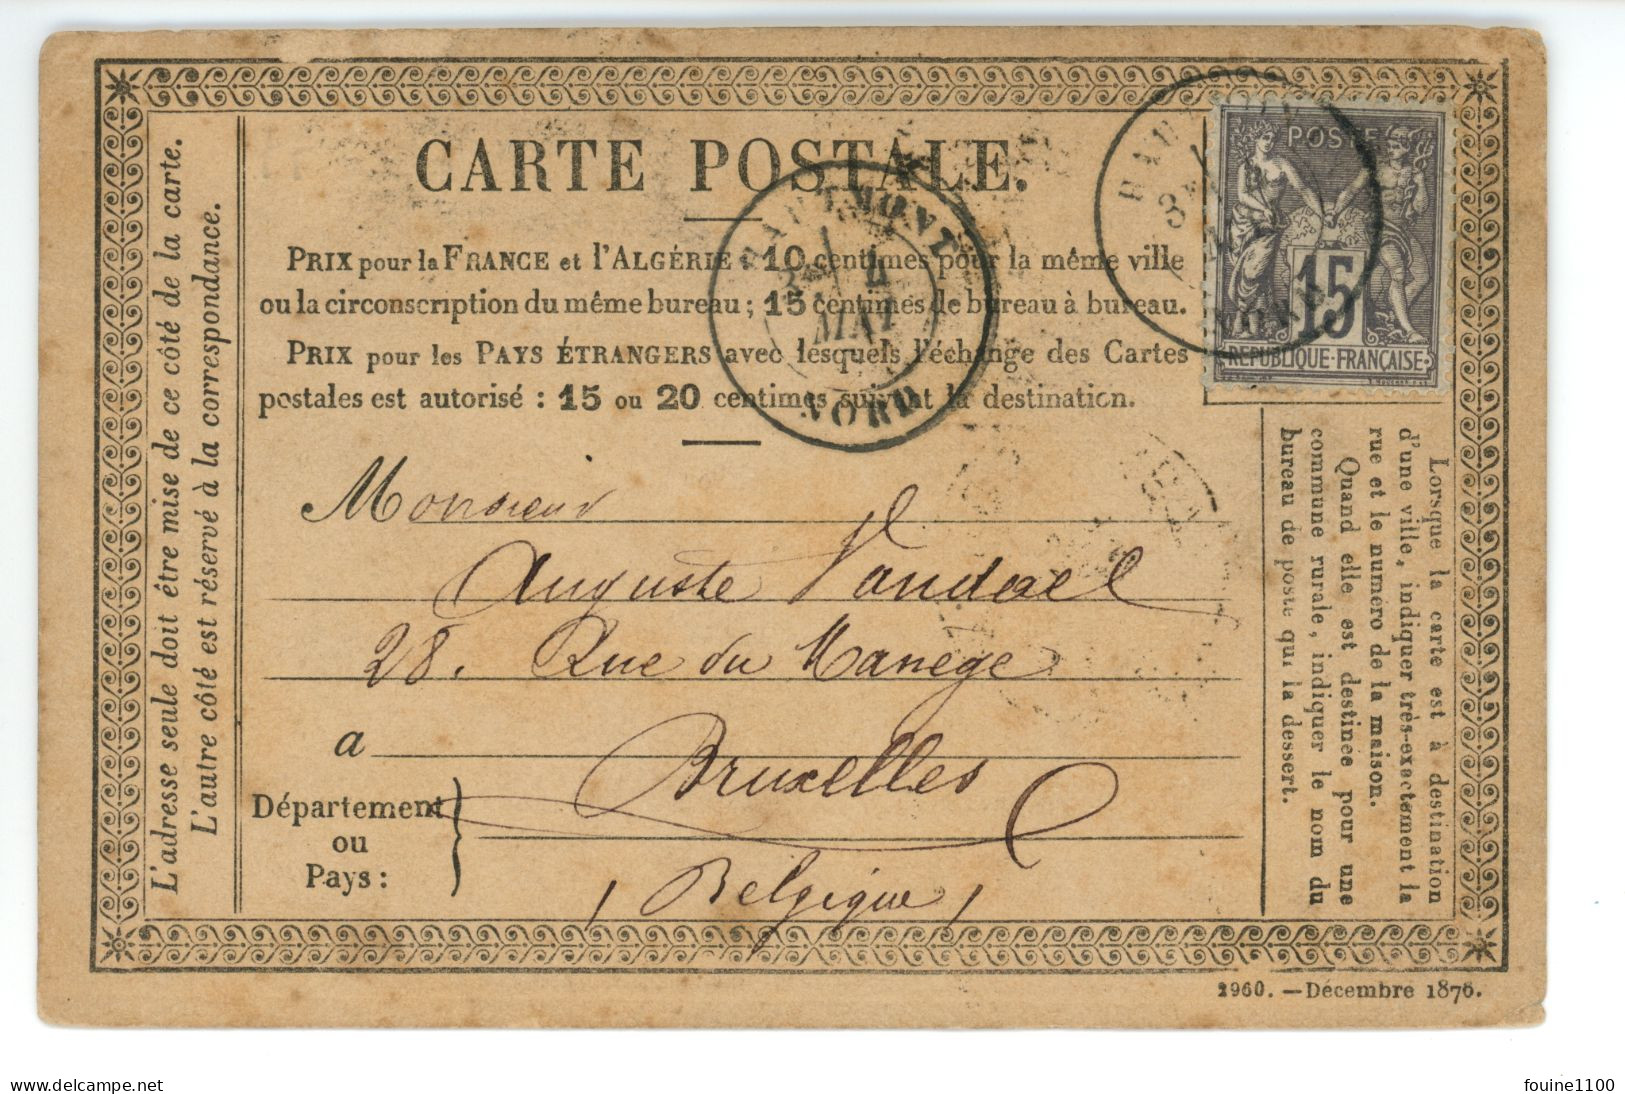 CARTE POSTALE.
PRIX pour la FRANCE et l'ALGÉRIE : 10 centimes pour la même ville
ou la circonscription du même bureau ; 15 centimes de bureau à bureau.
PRIX pour les PAYS ÉTRANGERS avec lesquels l'échange des Cartes
postales est autorisé : 15 ou 20 centimes suivant la destination.
L'adresse seule doit être mise de ce côté de la carte.
L'autre côté est réservé à la correspondance.
HAUTMONT
4
MAI
NORD
POSTE
15
REPUBLIQUE FRANÇAISE
NORD
Monsieur
Auguste Vandael
28. Rue du Manege
a
Bruxelles
Département
ou
Pays :
Belgique
Lorsque la carte est à destination
d'une ville, indiquer très-exactement la
rue et le numéro de la maison.
Quand elle est destinée pour une
commune rurale, indiquer le nom du
bureau de poste qui la dessert.
2960. — Décembre 1876.
delcampe.net
fouine1100